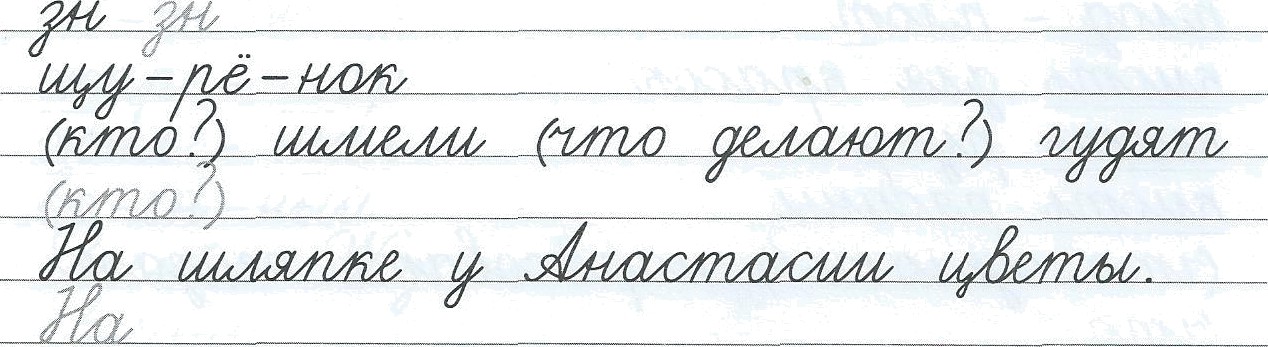 зн зн
щу-рё-нок
(кто?) шмели (что делают?) гудят
(кто?)
На шляпке у Анастасии цветы.
На